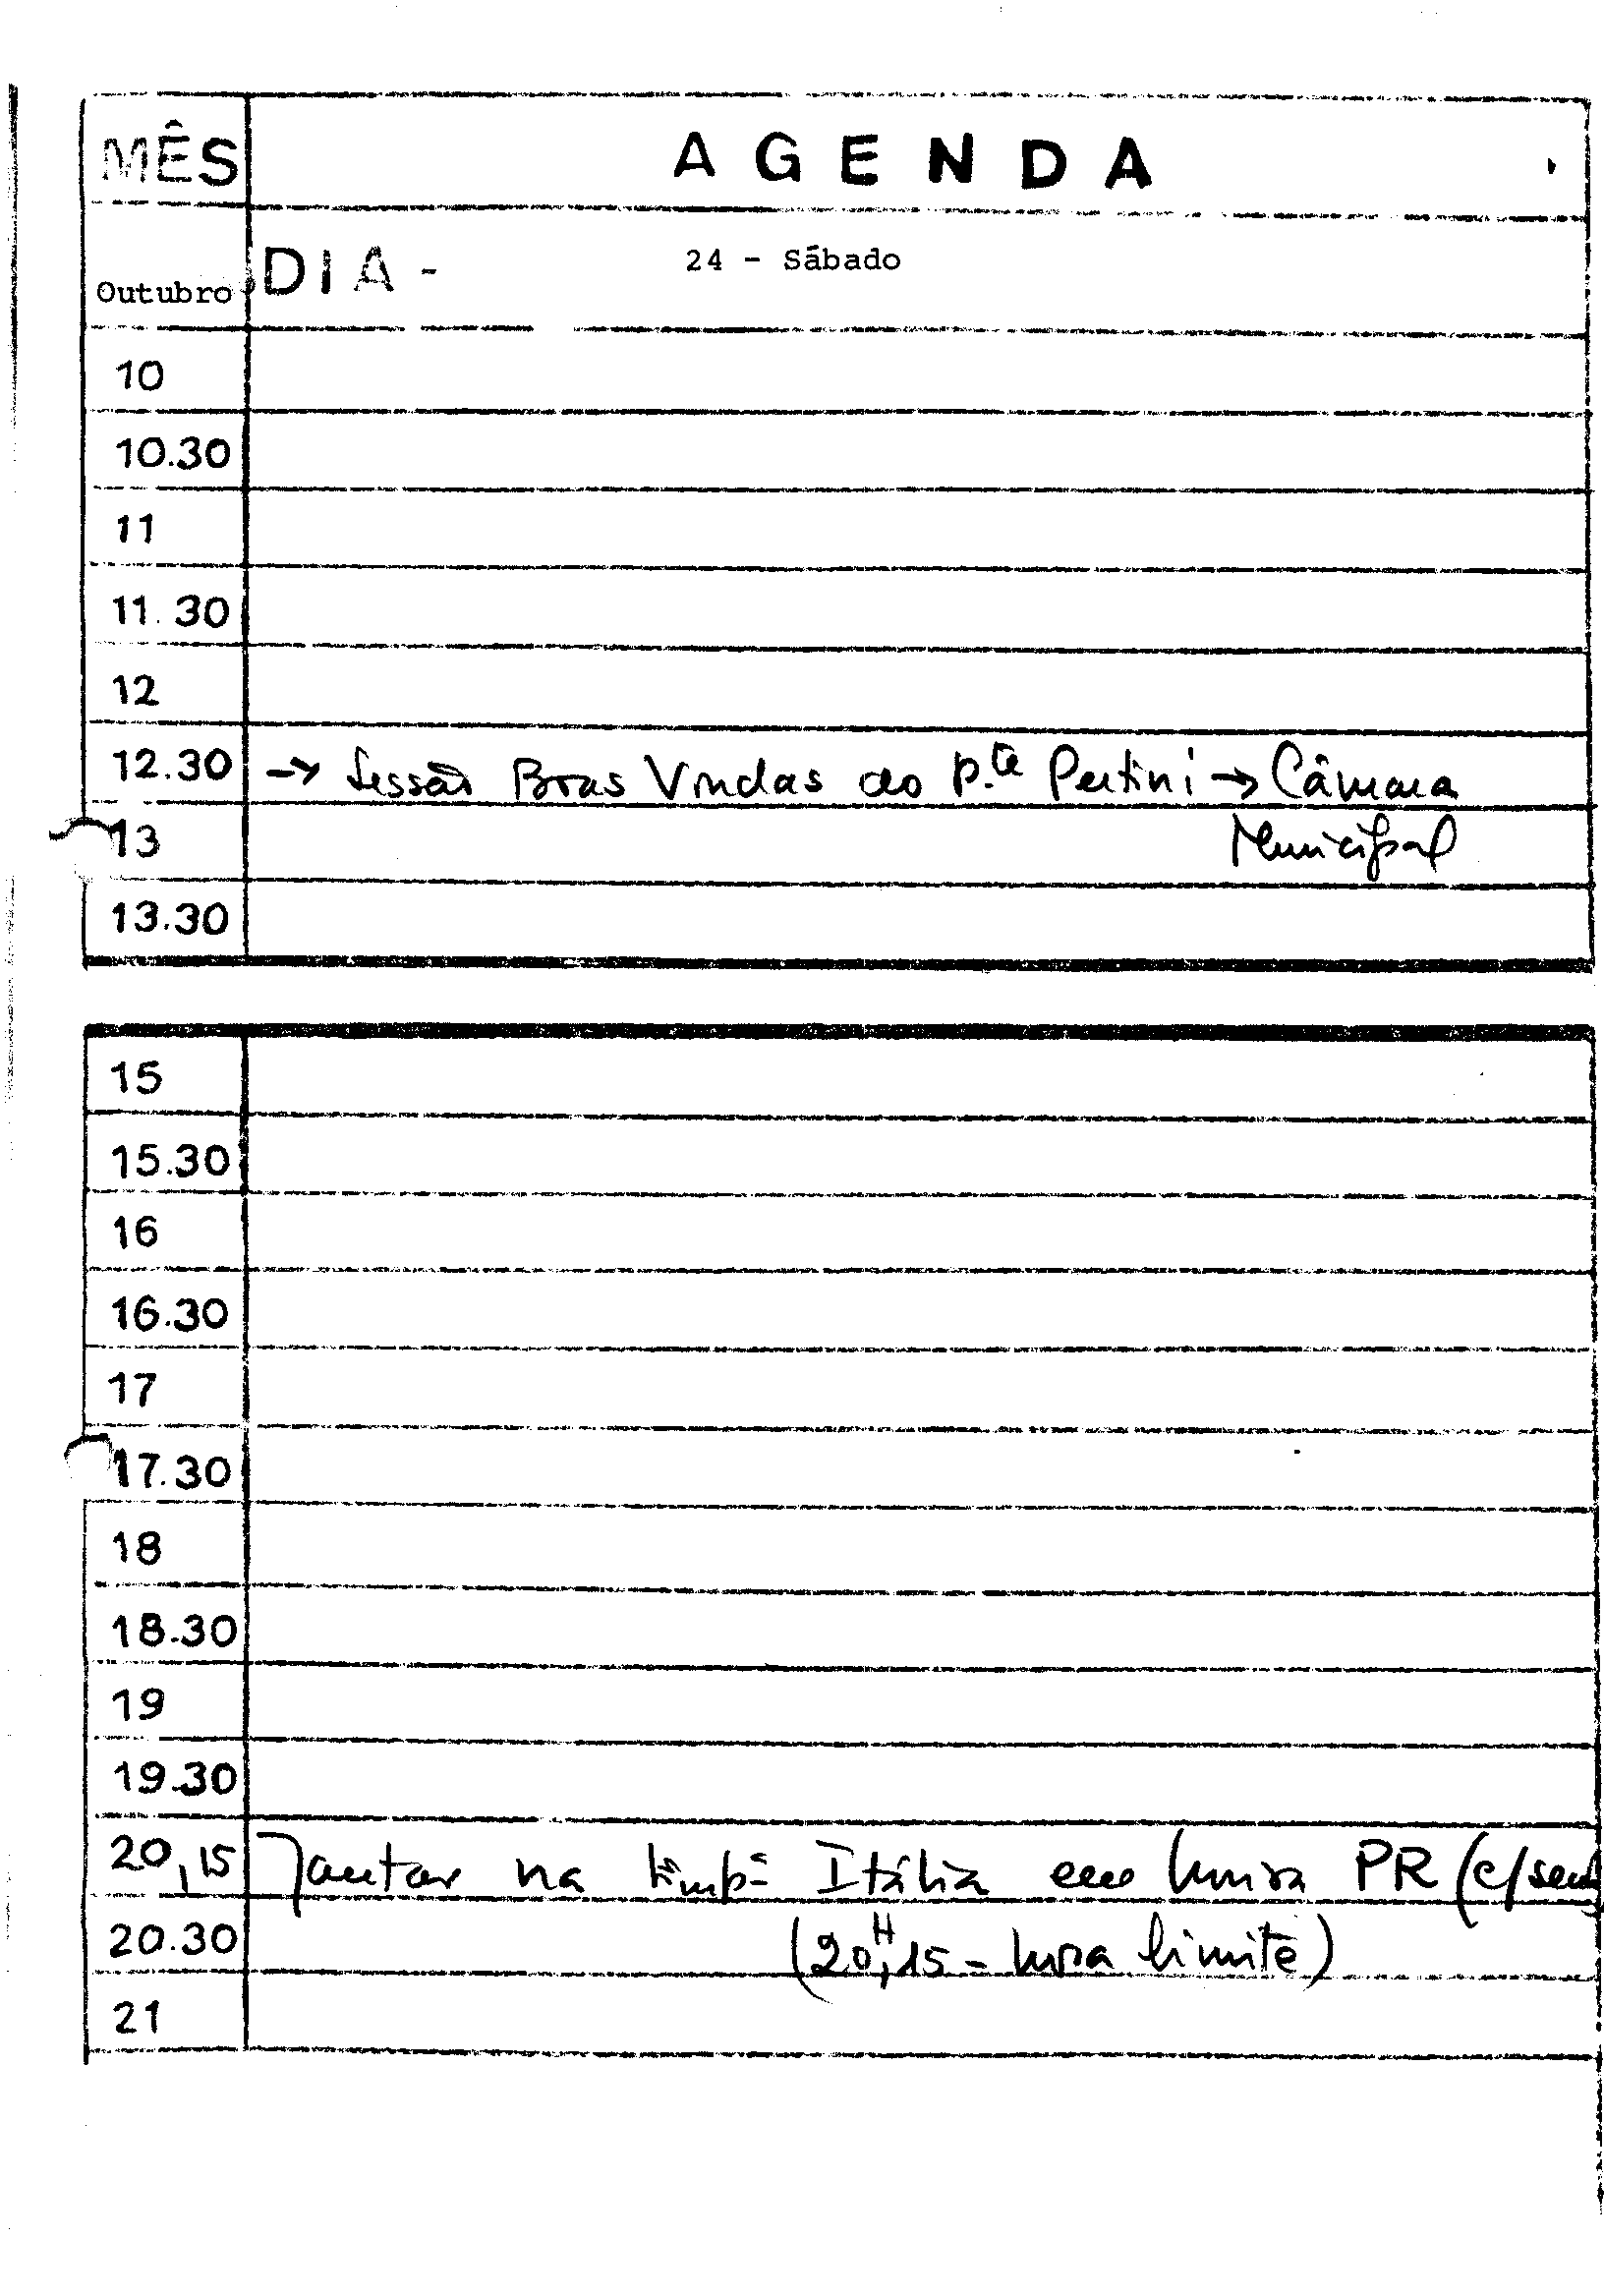 MÊS AGENDA
Outubro DIA - 24 - Sábado
10
10.30
11
11.30
12
12.30 → Sessão Boas Vindas ao P.te Pertini → Câmara
13 Municipal
13.30
15
15.30
16
16.30
17
17.30
18
18.30
19
19.30
20,15 Jantar na Itália em honra PR (c/
20.30 (20H,15 - hora limite)
21